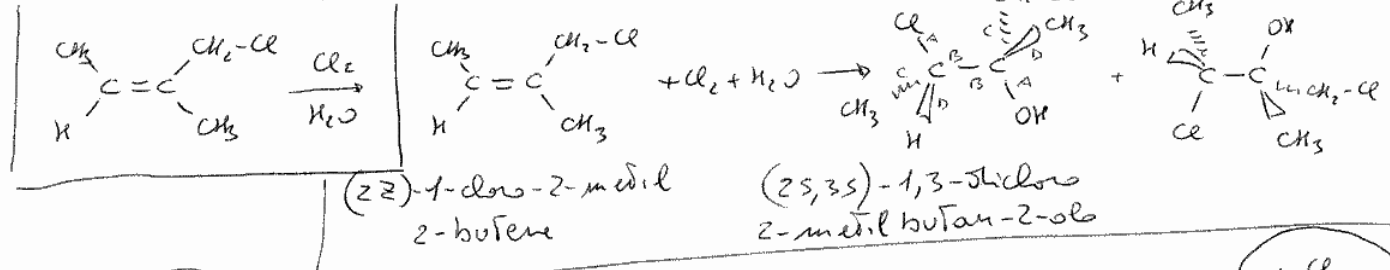 CH₃ CH₂-Cl
C=C
H CH₃
Cl₂
H₂O
CH₃ CH₂-Cl
C=C
H CH₃
+Cl₂+H₂O
Cl A C CH₃
C C B - C D
CH₃ D B A
H OH
+
CH₃ OH
H
C-C CH₂-Cl
Cl CH₃
(2Z)-1-cloro-2-metil
2-butene
(2S,3S)-1,3-dicloro
2-metil butan-2-olo
Cl